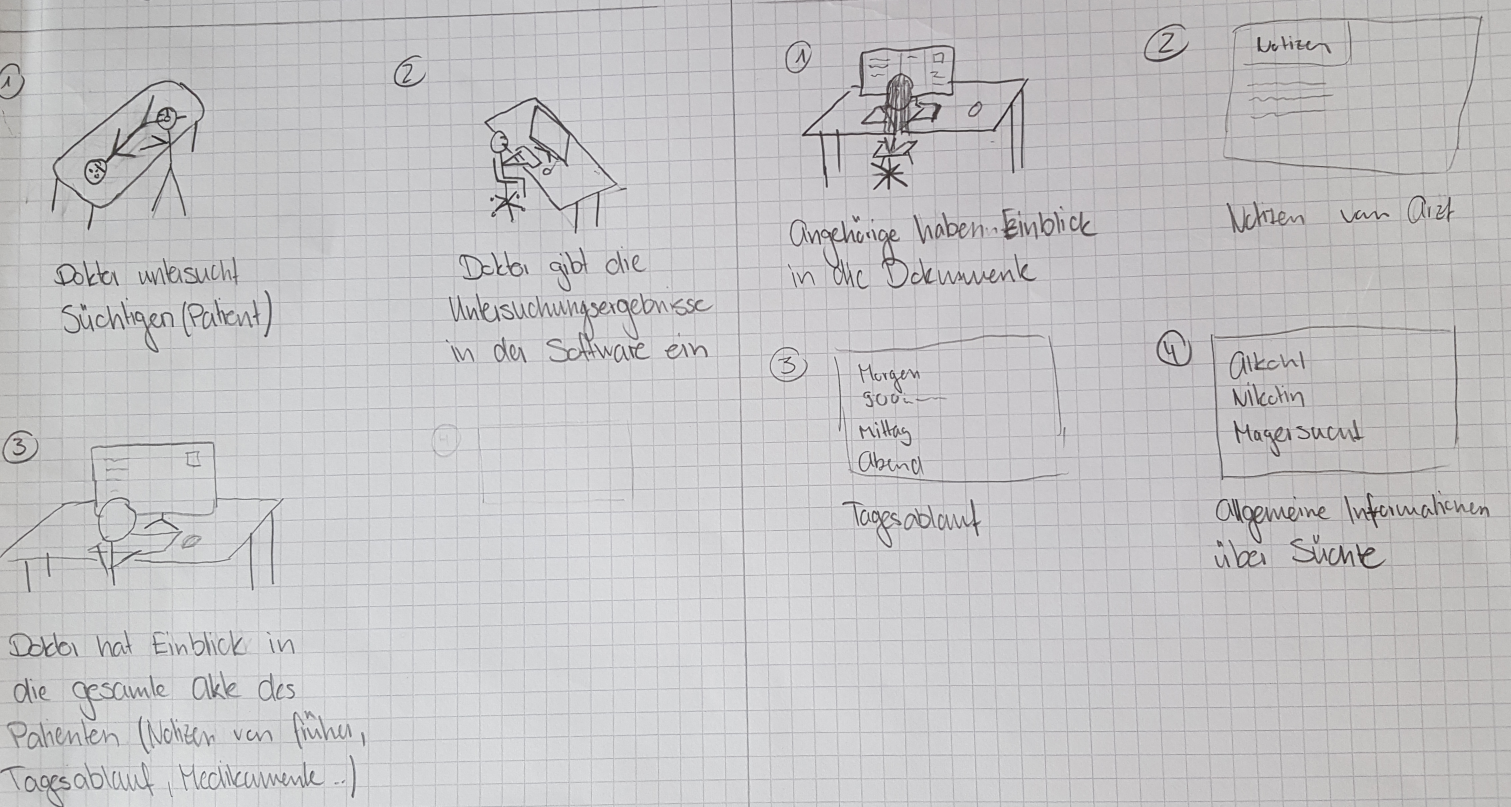 ①
Doktor untersucht
Süchtigen (Patient)
②
Doktor gibt die
Untersuchungsergebnisse
in der Software ein
③
Doktor hat Einblick in
die gesamte Akte des
Patienten (Notizen von früher,
Tagesablauf, Medikamente..)
④
①
Angehörige haben Einblick
in die Dokumente
②
Notizen
Notizen vom Arzt
③
Morgen
Mittag
Abend
Tagesablauf
④
Alkohl
Nikotin
Magersucht
Allgemeine Informationen
über Süchte